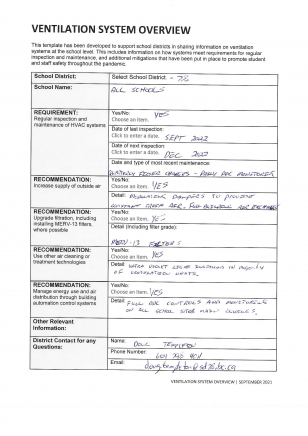 VENTILATION SYSTEM OVERVIEW
This template has been developed to support school districts in sharing information on ventilation
systems at the school level. This includes information on how systems meet requirements for regular
inspection and maintenance, and additional mitigations that have been put in place to promote student
and staff safety throughout the pandemic.
School District:
Select School District. - 78
School Name:
ALL SCHOOLS
REQUIREMENT:
Regular inspection and
maintenance of HVAC systems
Yes/No: YES
Choose an item.
Date of last inspection:
Click to enter a date. SEPT 2022
Date of next inspection:
Click to enter a date. DEC 2022
Date and type of most recent maintenance:
FILTER CHANGES - DAILY DDC MONITORED
RECOMMENDATION:
Increase supply of outside air
Yes/No:
Choose an item. YES
Detail: DAMPERS TO PROVIDE
CONSTANT FRESH AIR.
RECOMMENDATION:
Upgrade filtration, including
installing MERV-13 filters,
where possible
Yes/No:
Choose an item. YES
Detail (including filter grade):
MERV-13 FILTERS
RECOMMENDATION:
Use other air cleaning or
treatment technologies
Yes/No:
Choose an item. YES
Detail: ULTRA VIOLET LIGHT
OF VENTILATION UNITS.
RECOMMENDATION:
Manage energy use and air
distribution through building
automation control systems
Yes/No:
Choose an item. YES
Detail: FULL DDC CONTROLS AND MONITORING
ON ALL SCHOOL SITES MAIN
Other Relevant
Information:
District Contact for any
Questions:
Name: DOUG TEMPLETON
Phone Number:
604
Email:
VENTILATION SYSTEM OVERVIEW | SEPTEMBER 2021